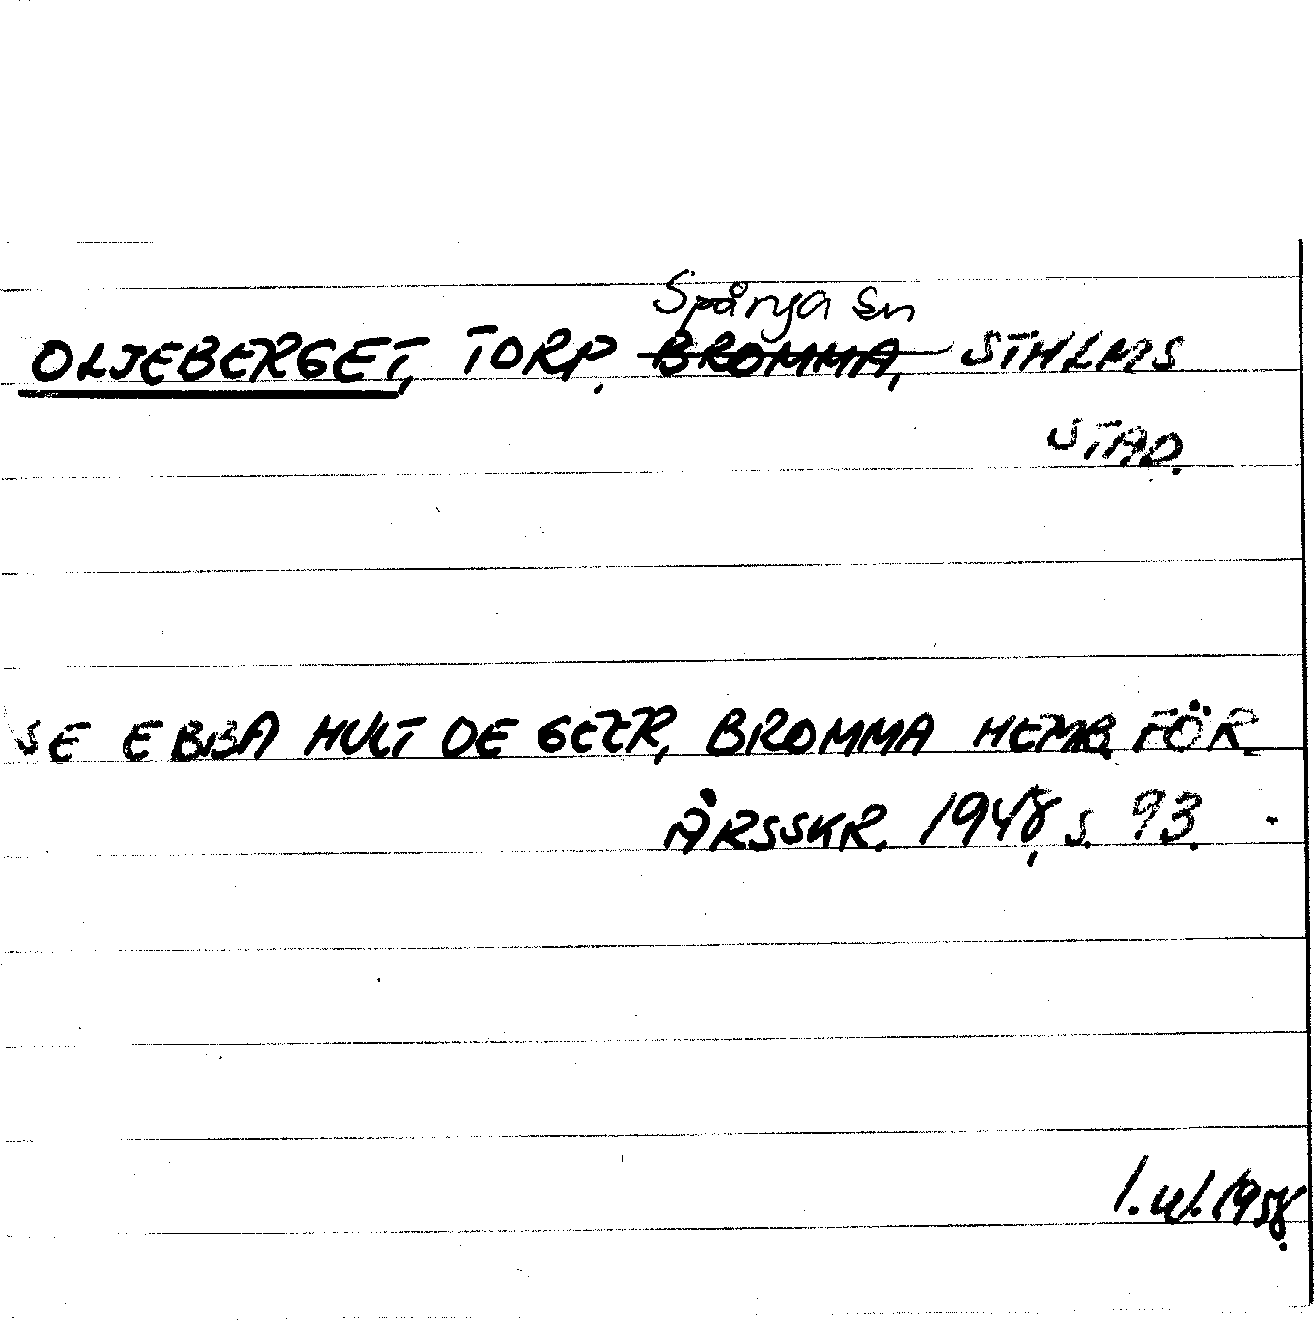 Spånga sn
OLJEBERGET, TORP. BROMMA, STHLMS
STAD.
SE EBBA HULT DE GEER, BROMMA HEMB. FÖR.
ÅRSSKR. 1948, S. 93.
1958.